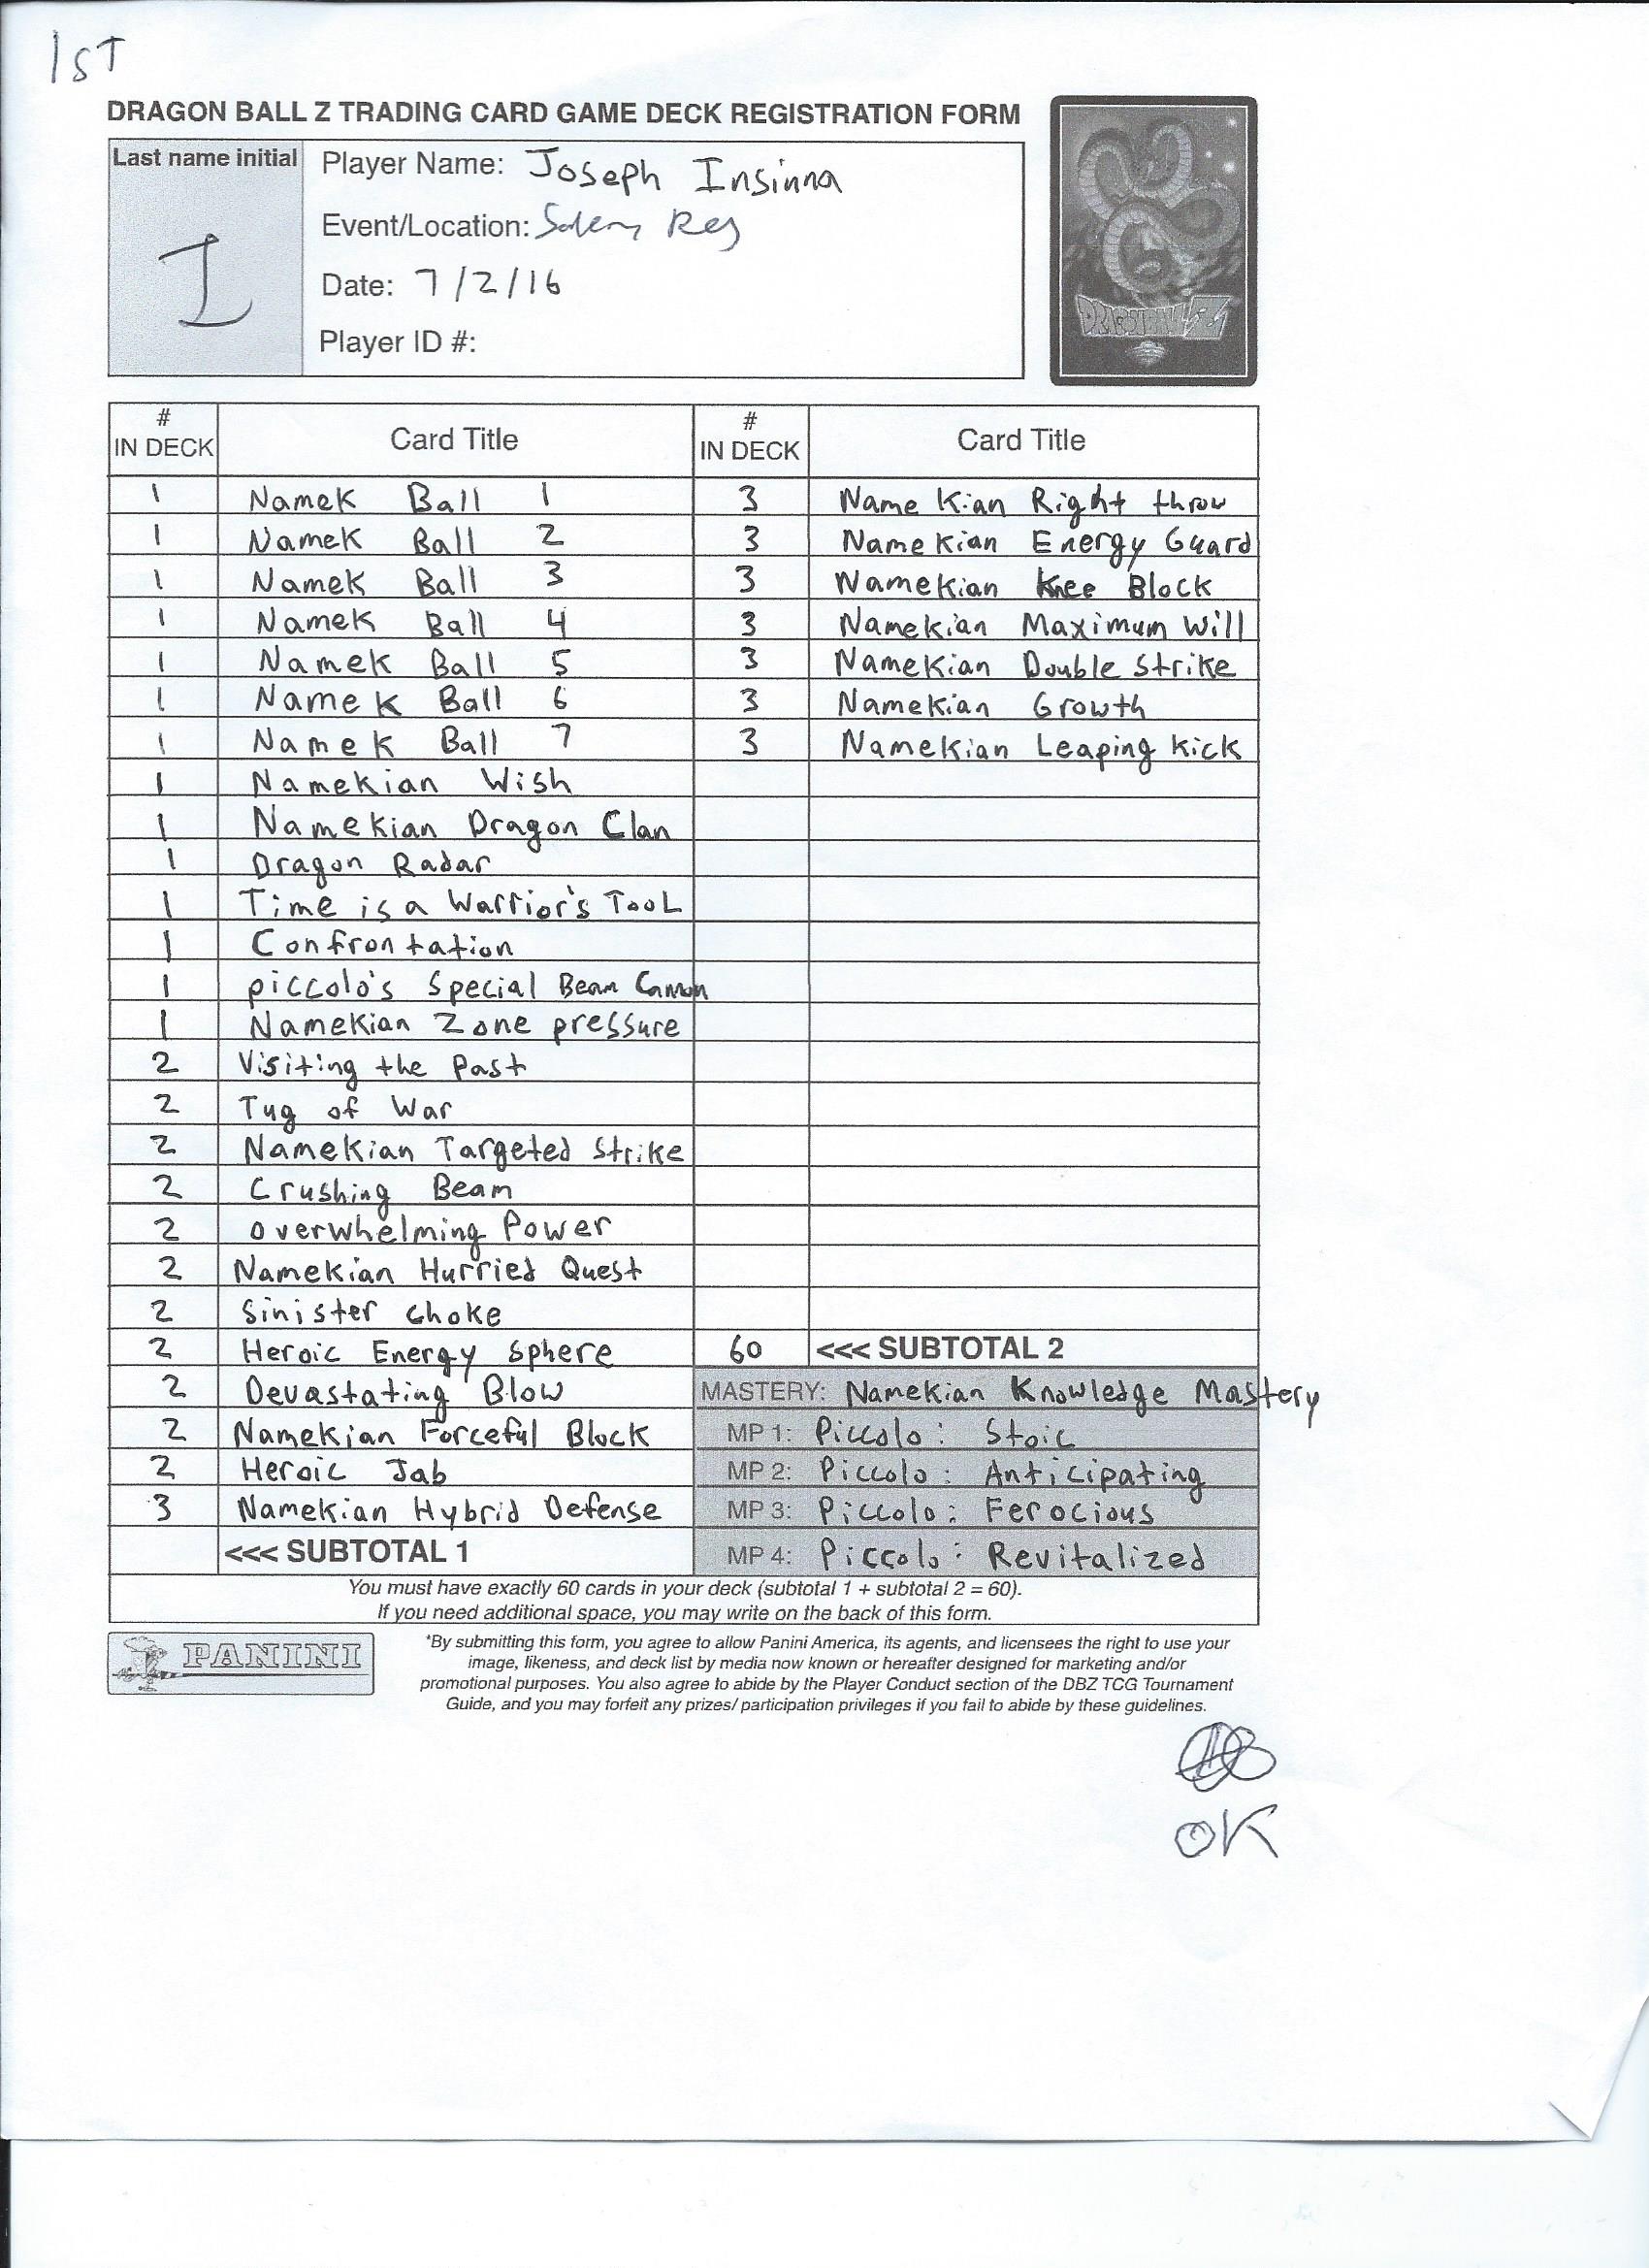 1ST
DRAGON BALL Z TRADING CARD GAME DECK REGISTRATION FORM
Last name initial
I
Player Name: Joseph Insinna
Event/Location: Salem Reg
Date: 7/2/16
Player ID #:
DRAGONBALL Z
# IN DECK Card Title # IN DECK Card Title
1 Namek Ball 1 3 Namekian Right throw
1 Namek Ball 2 3 Namekian Energy Guard
1 Namek Ball 3 3 Namekian Knee Block
1 Namek Ball 4 3 Namekian Maximum Will
1 Namek Ball 5 3 Namekian Double Strike
1 Namek Ball 6 3 Namekian Growth
1 Namek Ball 7 3 Namekian Leaping Kick
1 Namekian Wish
1 Namekian Dragon Clan
1 Dragon Radar
1 Time is a Warrior's TooL
1 Confrontation
1 piccolo's Special Beam Cannon
1 Namekian Zone pressure
2 Visiting the Past
2 Tug of War
2 Namekian Targeted Strike
2 Crushing Beam
2 overwhelming Power
2 Namekian Hurried Quest
2 Sinister choke
2 Heroic Energy Sphere 60 <<< SUBTOTAL 2
2 Devastating Blow MASTERY: Namekian Knowledge Mastery
2 Namekian Forceful Block MP 1: Piccolo: Stoic
2 Heroic Jab MP 2: Piccolo: Anticipating
3 Namekian Hybrid Defense MP 3: Piccolo: Ferocious
<<< SUBTOTAL 1 MP 4: Piccolo: Revitalized
You must have exactly 60 cards in your deck (subtotal 1 + subtotal 2 = 60).
If you need additional space, you may write on the back of this form.
PANINI
*By submitting this form, you agree to allow Panini America, its agents, and licensees the right to use your
image, likeness, and deck list by media now known or hereafter designed for marketing and/or
promotional purposes. You also agree to abide by the Player Conduct section of the DBZ TCG Tournament
Guide, and you may forfeit any prizes/ participation privileges if you fail to abide by these guidelines.
OK